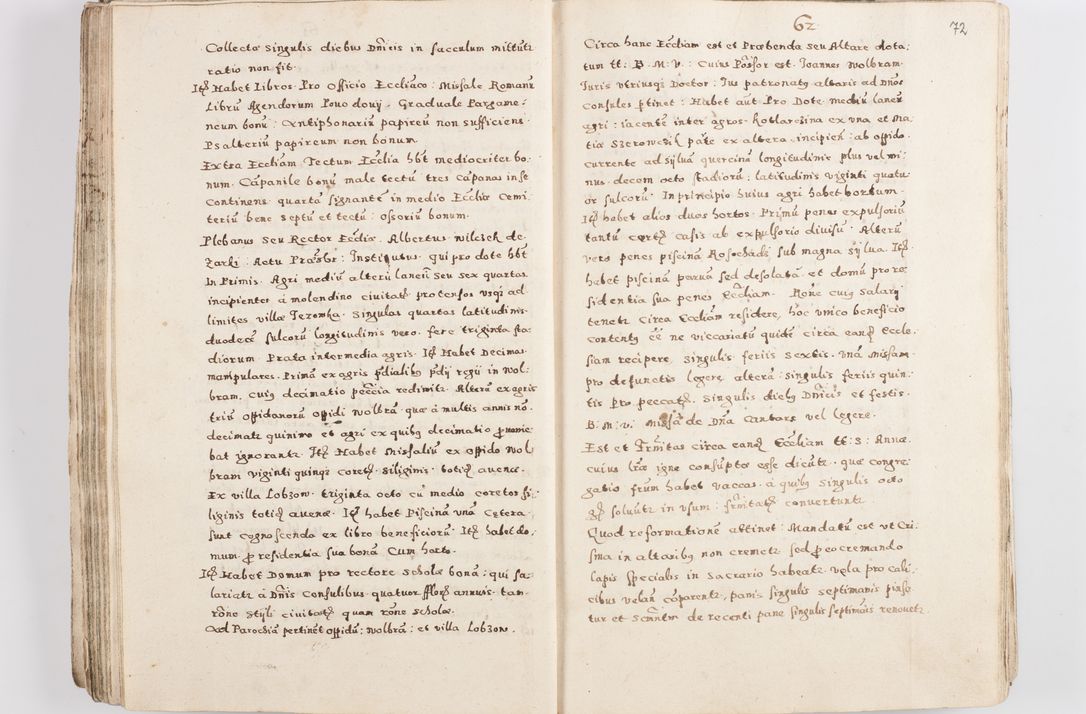 Collecta singulis diebus Dnicis in sacculum mittutr
ratio non fit.
Itẽ Habet Libros Pro Officio Eccliaco: Missale Romanũ
Librũ Agendorum Povodovij. Graduale Pargame-
neum bonũ: Antiphonariũ papireũ non sufficiens.
Psalteriũ papireum non bonum.
Extra Eccliam Tectum Ecclia hbt mediocriter bo:
num. Cãpanile bonũ male tectũ tres cãpanas in se
Continens quarta signantẽ in medio Ecclie Cemi
teriũ bene septũ et tectũ: ossoriũ bonum.
Plebanus Seu Rector Ecclie Albertus Wilczek de
Zarki. Actu Prãsbr: Institutus. qui pro dote hbt
In Primis. Agri mediũ alterũ laneũ seu sex quartas
incipientes â molendino civitats protensos usqz ad
limites villæ Jezomka. Singulas quartas latitudinis
duodecẽ sulcorũ longitudinis vero. fere triginta sta
diorum. Prata intermedia agris. Itẽ Habet Decimas
manipulares. Primã ex agris pdialibo pdij regij in Wol:
bram. cuiq decimatio peccia redimitr. Alterã ex agris
triũ offidanorũ offidi Wolbrã quæ â multis annis nõ
decimatr quinimo et agri ex quibq decimatio provenie
bat ignorantr. Itẽ Habet Missaliũ ex offido Wol
bram viginti quinqz coretq siliginis totiq avenæ.
Ex villa Lobzow. triginta octo cũ medio coretos si-
liginis totiq avenæ. Itẽ habet Piscinã vnã Cetera
sunt cognoscenda ex libro beneficiorũ. Itẽ habet do:
mum p residentia sua bonã Cum horto.
Itẽ Habet Domum pro rectore scholæ bonã: qui sa-
lariatr â Dnis Consulibus quatuor fflorq annuis. tam
rõne styli civitatq quam rõne scholæ.
Ad Parochiã pertinet offidũ: Wolbrã: et villa Lobzow.
62
72
Circa hanc Eccliam est et Præbenda seu Altare dota:
tum tt: B: M: V: Cuius Possor est. Joannes Wolbram.
Juris utriusqz Doctor: Jus patronatq altaris ad Dños
Consules ptinet: Habet aũt Pro Dote mediũ laneũ
agri: iacentẽ inter agros. Kotlarczina ex vna et Ma
tia Szerowczik pãte ex altera. incipieñ: ab offido.
currente ad sylvã quercinã longitudinis plus vel mi:
nus decem octo stadiorũ: latitudinis viginti quatu
or sulcorũ. In principio huius agri habet hortum.
Itẽ habet alios duos hortos. Primũ penes expulsoriũ
tantũ certis casis ab expulsorio divisũ. Alterũ
vero penes piscinã Rosochadz sub magna sylua. Itẽ
habet piscinã parvã sed desolatã et domũ pro re
sidentia sua penes Eccliam. Rõne cuiq Salarij
tenetr circa Eccliam residere, hoc vnico beneficio
contentq eẽ ne viccariatũ quidẽ circa eandẽ Eccle
siam recipere. singulis feriis sextis. vnã Missam
pro defunctis legere alterã singulis feriis quin
tis pro peccatq. Singulis diebq Dnicis et festis.
B: M: V: Missã de Dña Cantare vel legere.
Est et Frnitas circa eandẽ Eccliam tt: S: Annæ
cuius lræ igne consũptæ esse dicũtr. quæ congre
gatio frum habet vaccas. â quibq singulis octo
gs solvũtr in vsum: frnitatq convertuntr.
Quod reformationẽ attinet: Mandatũ est vt Cri
sma in altaribq non cremetr sed p eo cremando
lapis specialis in sacrario habeatr. vela pro cali
cibus velañ cõparentr, panis singulis septimanis pinse
tur et scrmñtm de recenti pane singulis septimãis renovetr